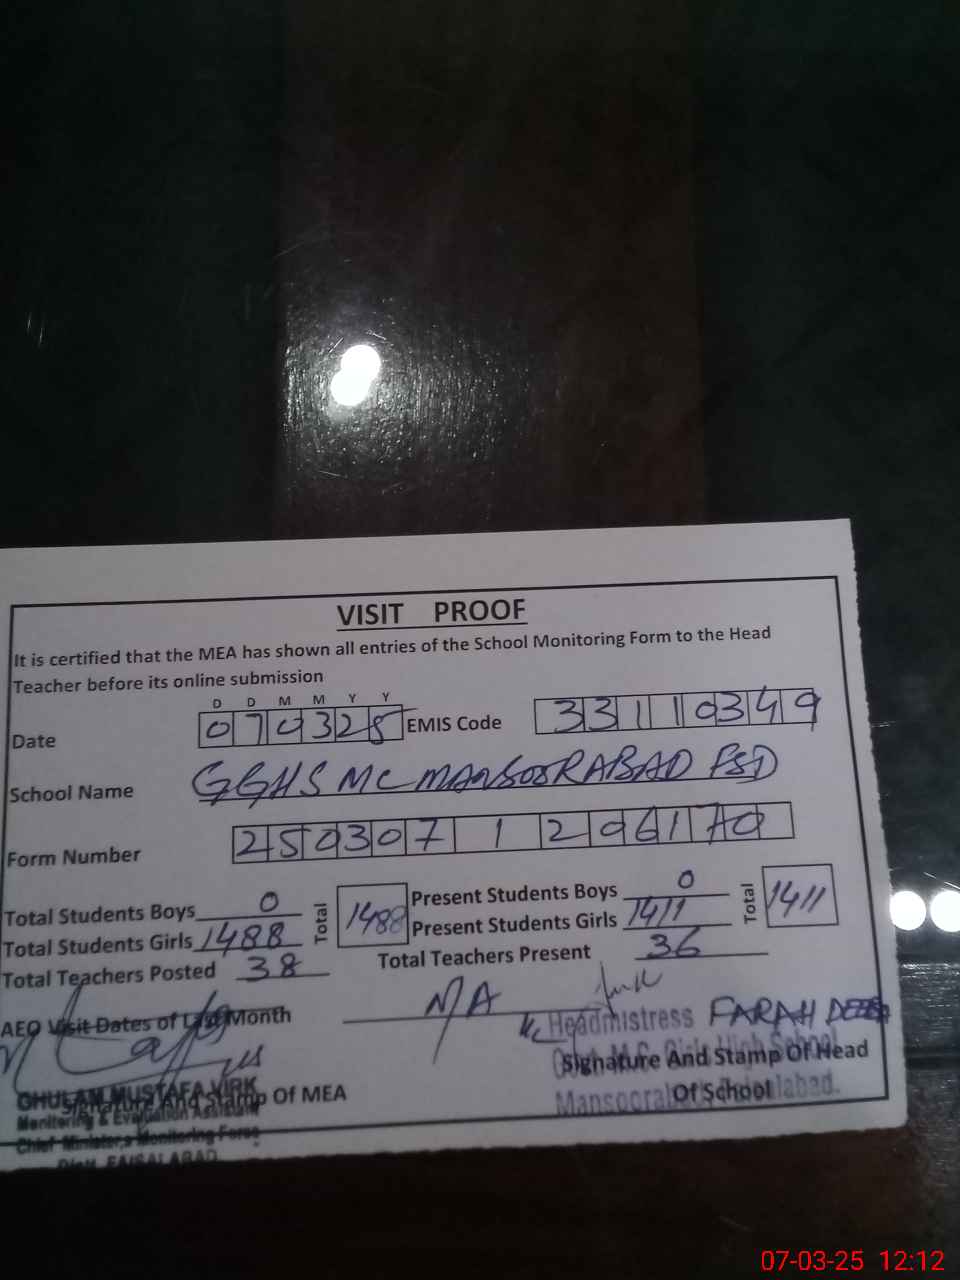 VISIT PROOF
It is certified that the MEA has shown all entries of the School Monitoring Form to the Head
Teacher before its online submission
D D M M Y Y
Date 070325 EMIS Code 33110349
School Name GGHS MC MANSOORABAD FSD
Form Number 250307 1 206170
Total Students Boys 0 Total 1488 Present Students Boys 0 Total 1411
Total Students Girls 1488 Present Students Girls 1411
Total Teachers Posted 38 Total Teachers Present 36
AEO Visit Dates of Last Month N/A
Headmistress FARAH
Govt. M.C. Girls High School
Signature And Stamp Of Head
Of School
GHULAM MUSTAFA VIRK
Signature And Stamp Of MEA
Monitoring & Evaluation Assistant
Chief Minister,s Monitoring Force
Distt. FAISALABAD
07-03-25 12:12